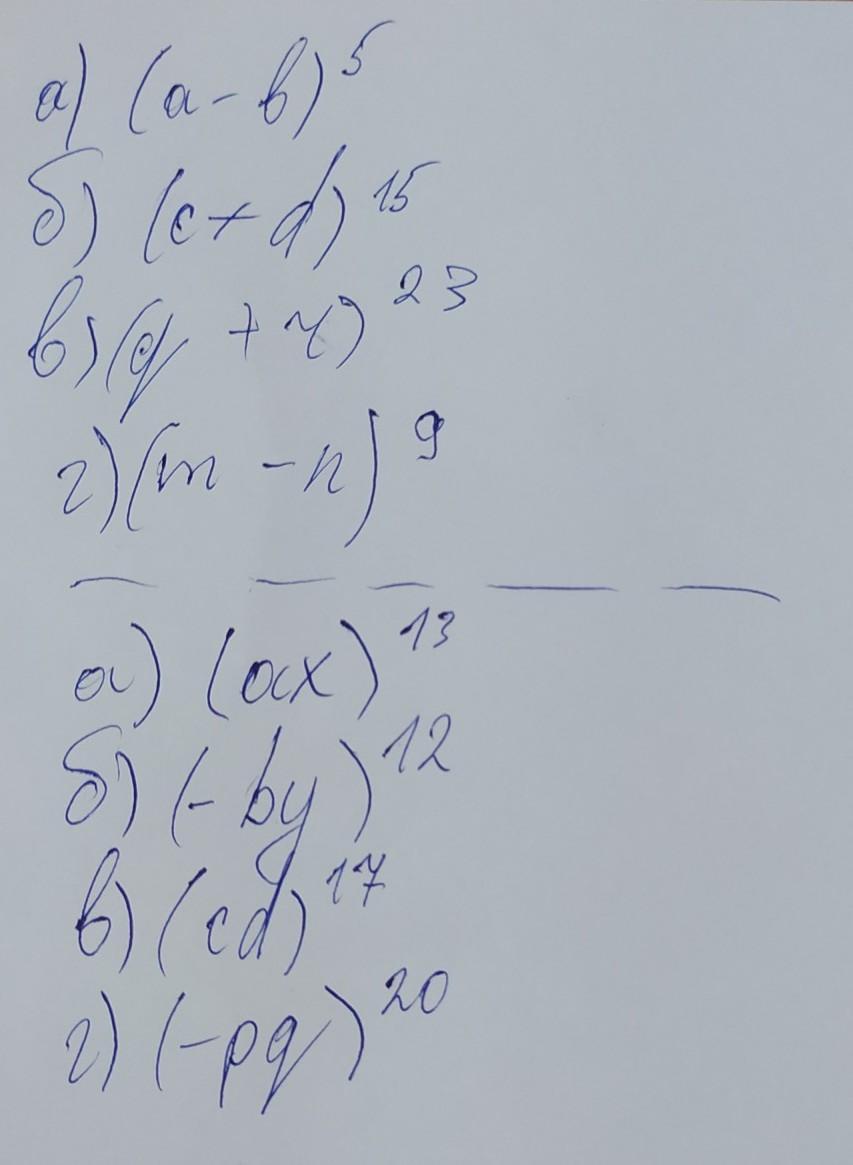 а) (a - b)^5
б) (c + d)^15
в) (q + r)^23
г) (m - n)^9
— — — — —
а) (ax)^13
б) (- by)^12
в) (cd)^17
г) (-pq)^20